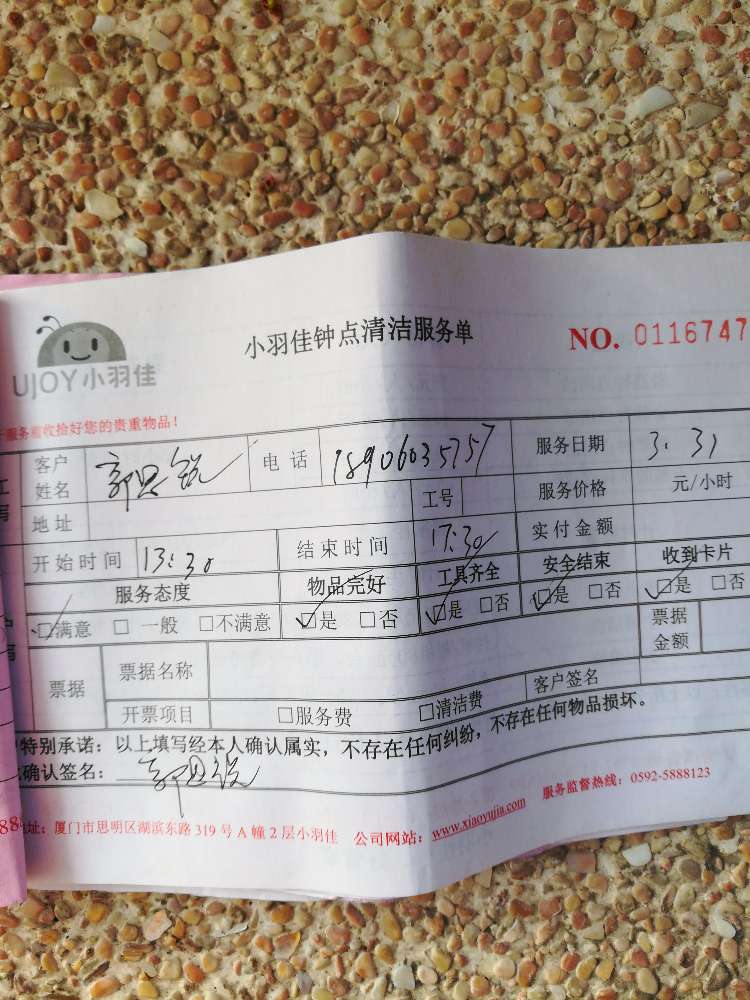 UJOY小羽佳
小羽佳钟点清洁服务单
NO. 0116747
服务前收拾好您的贵重物品！
客户姓名
电话 18906035757
服务日期 3.31
地址
工号
服务价格 元/小时
开始时间 13:30
结束时间 17:30
实付金额
服务态度 物品完好 工具齐全 安全结束 收到卡片
☑满意 □一般 □不满意 ☑是 □否 ☑是 □否 ☑是 □否 ☑是 □否
票据 票据名称
票据金额
开票项目 □服务费 □清洁费 客户签名
特别承诺：以上填写经本人确认属实，不存在任何纠纷，不存在任何物品损坏。
确认签名：
地址：厦门市思明区湖滨东路319号A幢2层小羽佳 公司网站：www.xiaoyujia.com 服务监督热线：0592-5888123